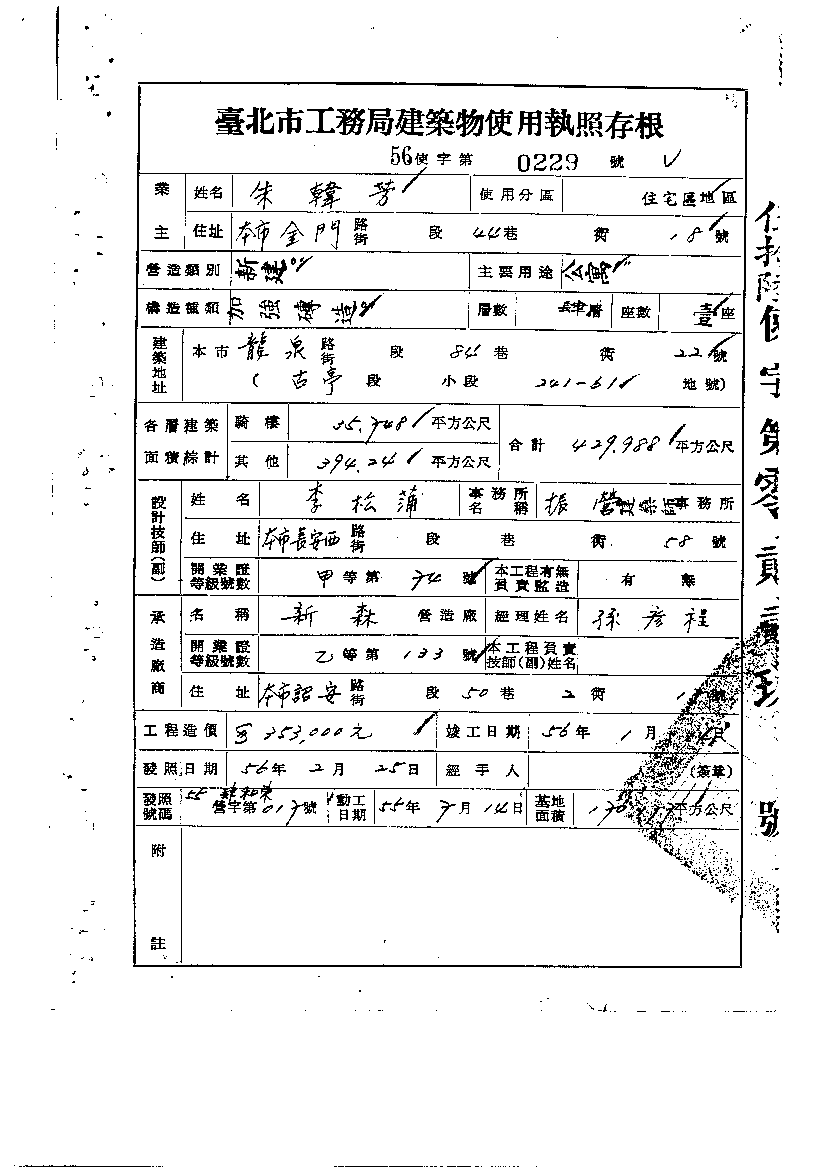 臺北市工務局建築物使用執照存根
56使字第 0229 號
業主 姓名 朱韓芳 使用分區 住宅區地區
住址 本市金門路街 段 44巷 衖 18號
營造類別 新建 主要用途 公寓
構造種類 加強磚造 層數 肆層 座數 壹座
建築地址 本市龍泉路街 段 84巷 衖 22號
(古亭段 小段 241-61 地號)
各層建築面積綜計 騎樓 35.748 平方公尺 合計 429.988 平方公尺
其他 394.24 平方公尺
設計技師(副) 姓名 李松蒲 事務所名稱 振營建築師事務所
住址 本市長安西路街 段 巷 衖 58號
開業證等級號數 甲等第 74 號 本工程有無負責監造 有 無
承造廠商 名稱 新森 營造廠 經理姓名 孫彥程
開業證等級號數 乙等第 133 號 本工程負責技師(副)姓名
住址 本市詔安路街 段 50巷 2衖 號
工程造價 353,000元 竣工日期 56年 1月 日
發照日期 56年 2月 25日 經手人 (簽章)
發照號碼 55 營字第017號 動工日期 55年 7月 14日 基地面積 平方公尺
附註
伍拾陸使字第零貳貳玖號